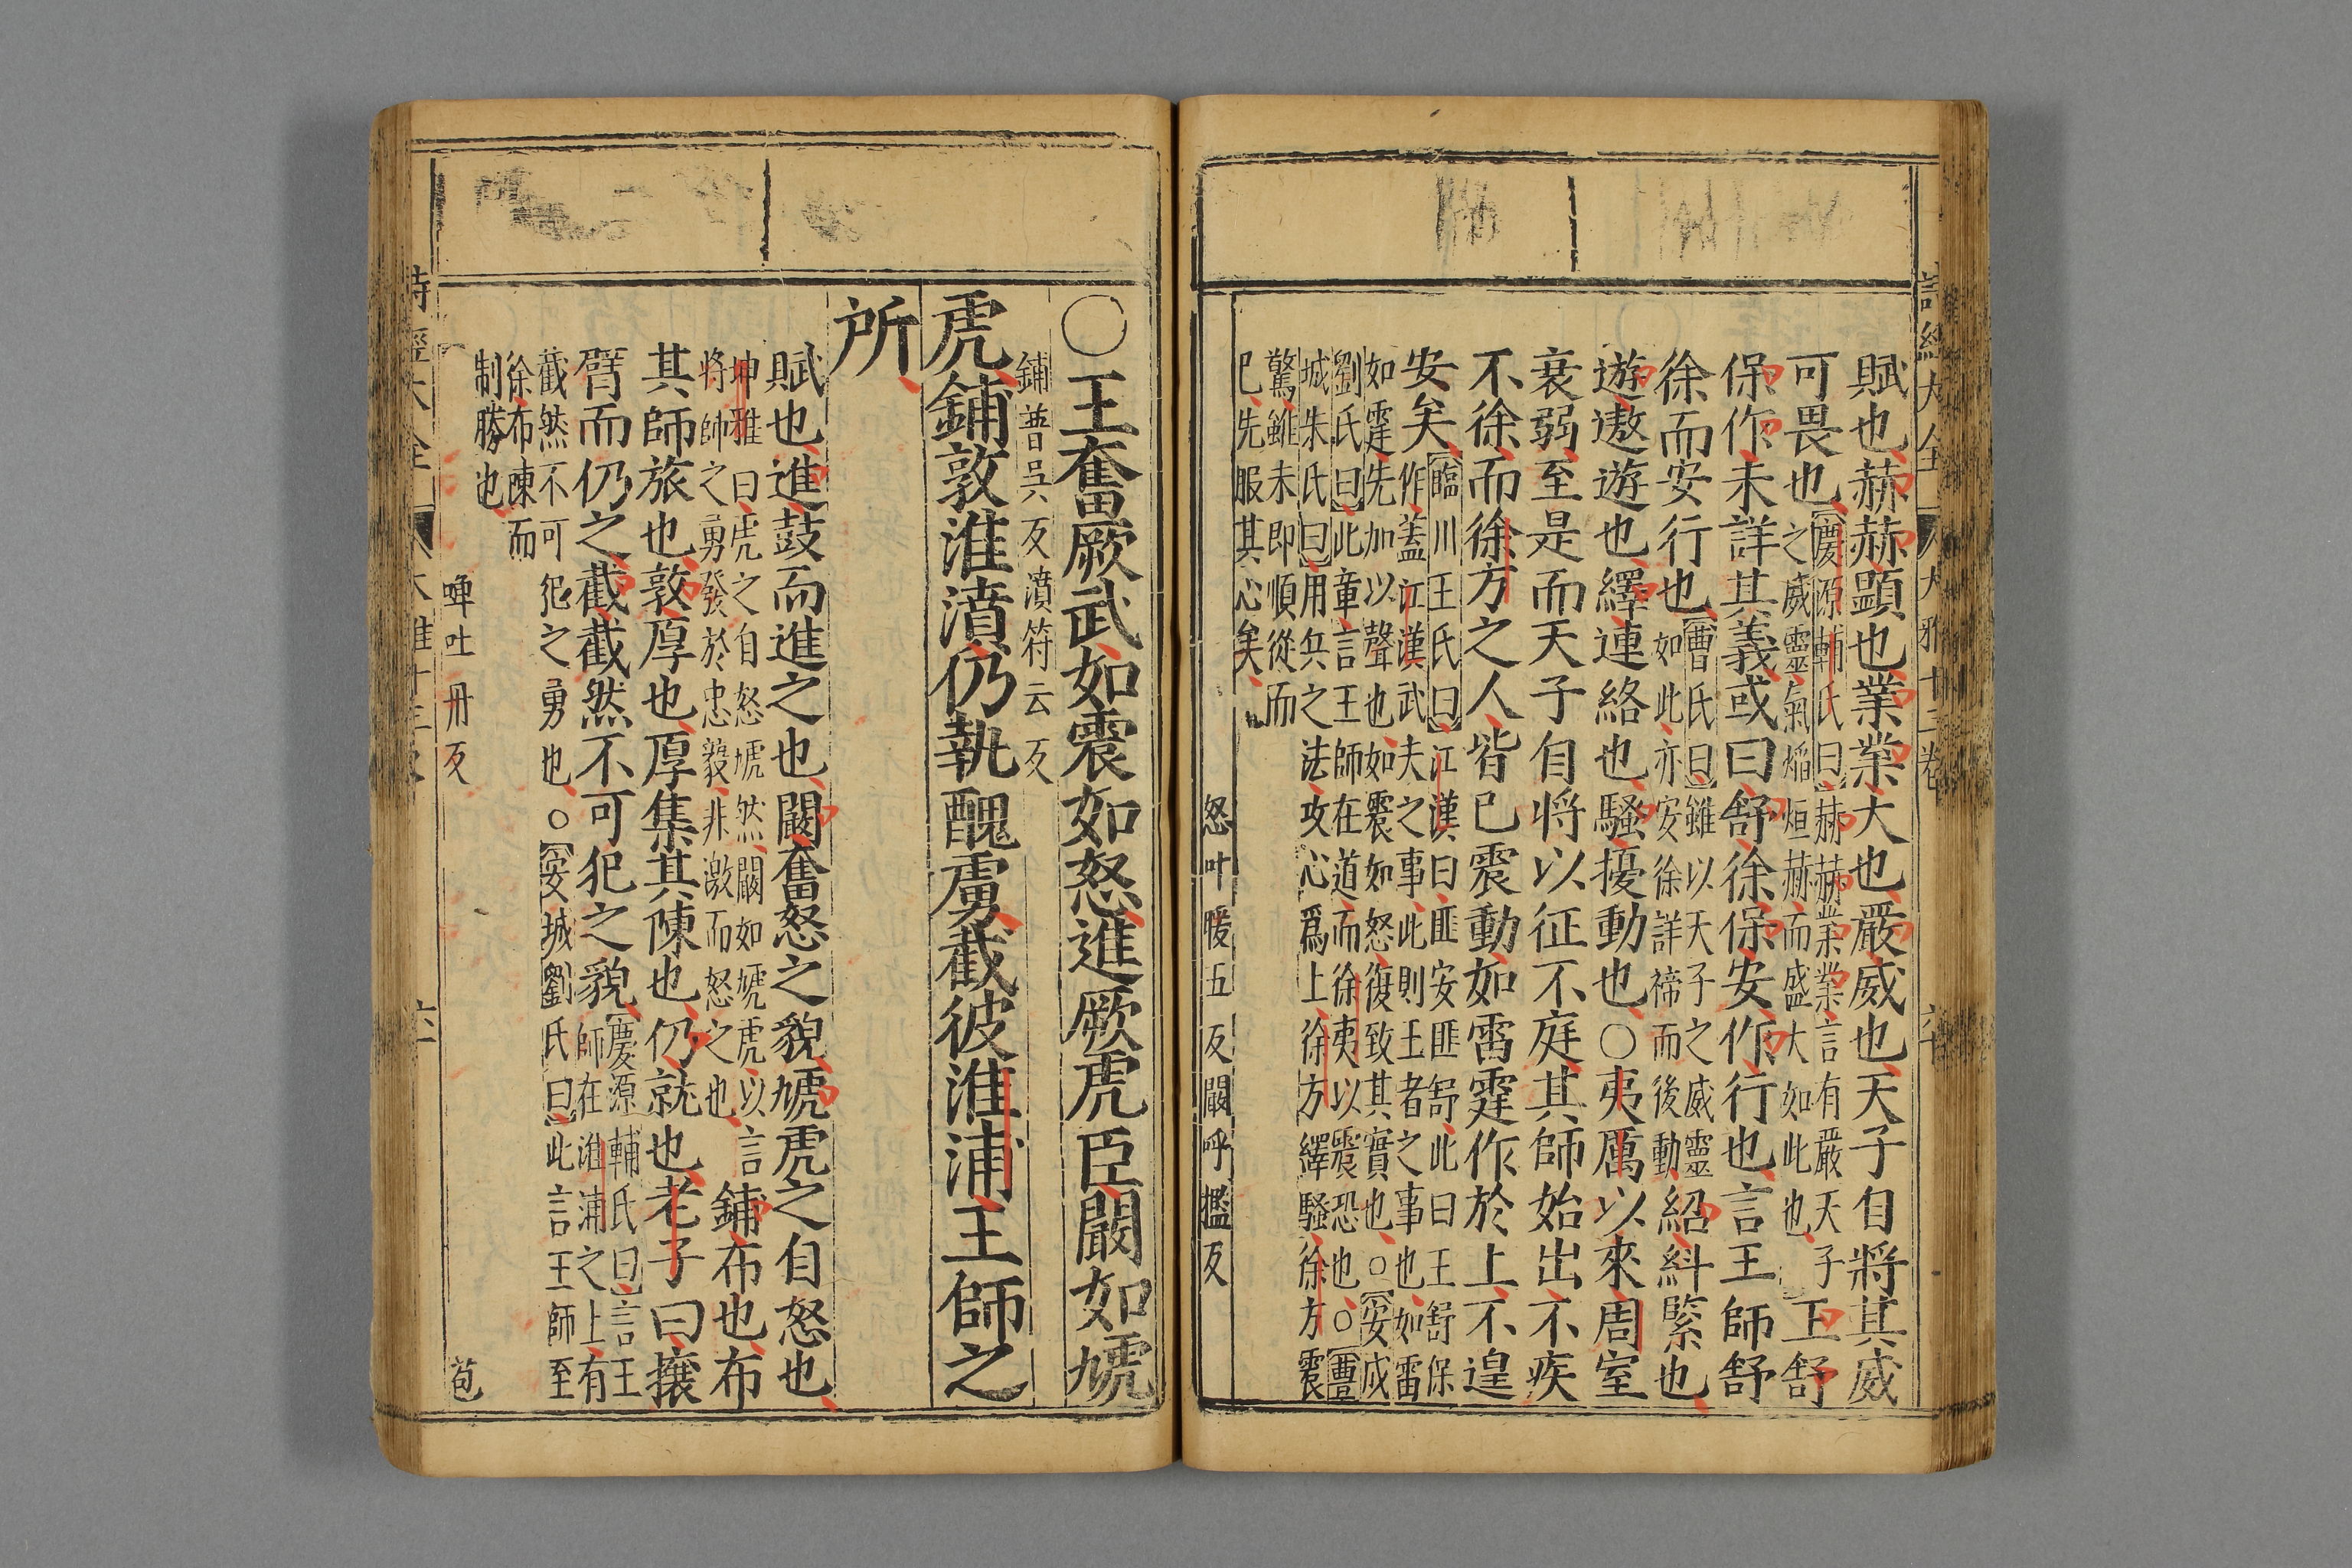 詩經大全 大雅十三卷
賦也赫赫顯也業業大也嚴威也天子自將其威
可畏也慶源輔氏曰赫赫業業言有嚴天子之威靈氣焰烜赫而盛大如此也王舒
保作未詳其義或曰舒徐保安作行也言王師舒
徐而安行也曹氏曰雖以天子之威靈如此亦安徐詳禘而後動紹糾緊也
遊遨遊也繹連絡也騷擾動也○夷厲以來周室
衰弱至是而天子自將以征不庭其師始出不疾
不徐而徐方之人皆已震動如雷霆作於上不遑
安矣臨川王氏曰江漢曰匪安匪舒此曰王舒保
作蓋江漢武夫之事此則王者之事也如雷
如霆先加以聲也如震如怒復致其實也○安成
劉氏曰此章言王師在道而徐夷以震恐也○豐
城朱氏曰用兵之法攻心爲上徐方繹騷徐方震
驚雖未即順從而
已先服其心矣
怒叶暖五反闞呼檻反
○王奮厥武如震如怒進厥虎臣闞如虓
鋪普吳反濆符云反
虎鋪敦淮濆仍執醜虜截彼淮浦王師之
所
賦也進鼓而進之也闞奮怒之貌虓虎之自怒也
坤雅曰虎之自怒虓然闞如虓虎以言將師之勇發於忠毅非激而怒之也鋪布也布
其師旅也敦厚也厚集其陳也仍就也老子曰攘
臂而仍之截截然不可犯之貌慶源輔氏曰言王師在淮浦之上有
截然不可犯之勇也○安城劉氏曰此言王師至
徐布陳而
制勝也
嘽吐丹反
苞